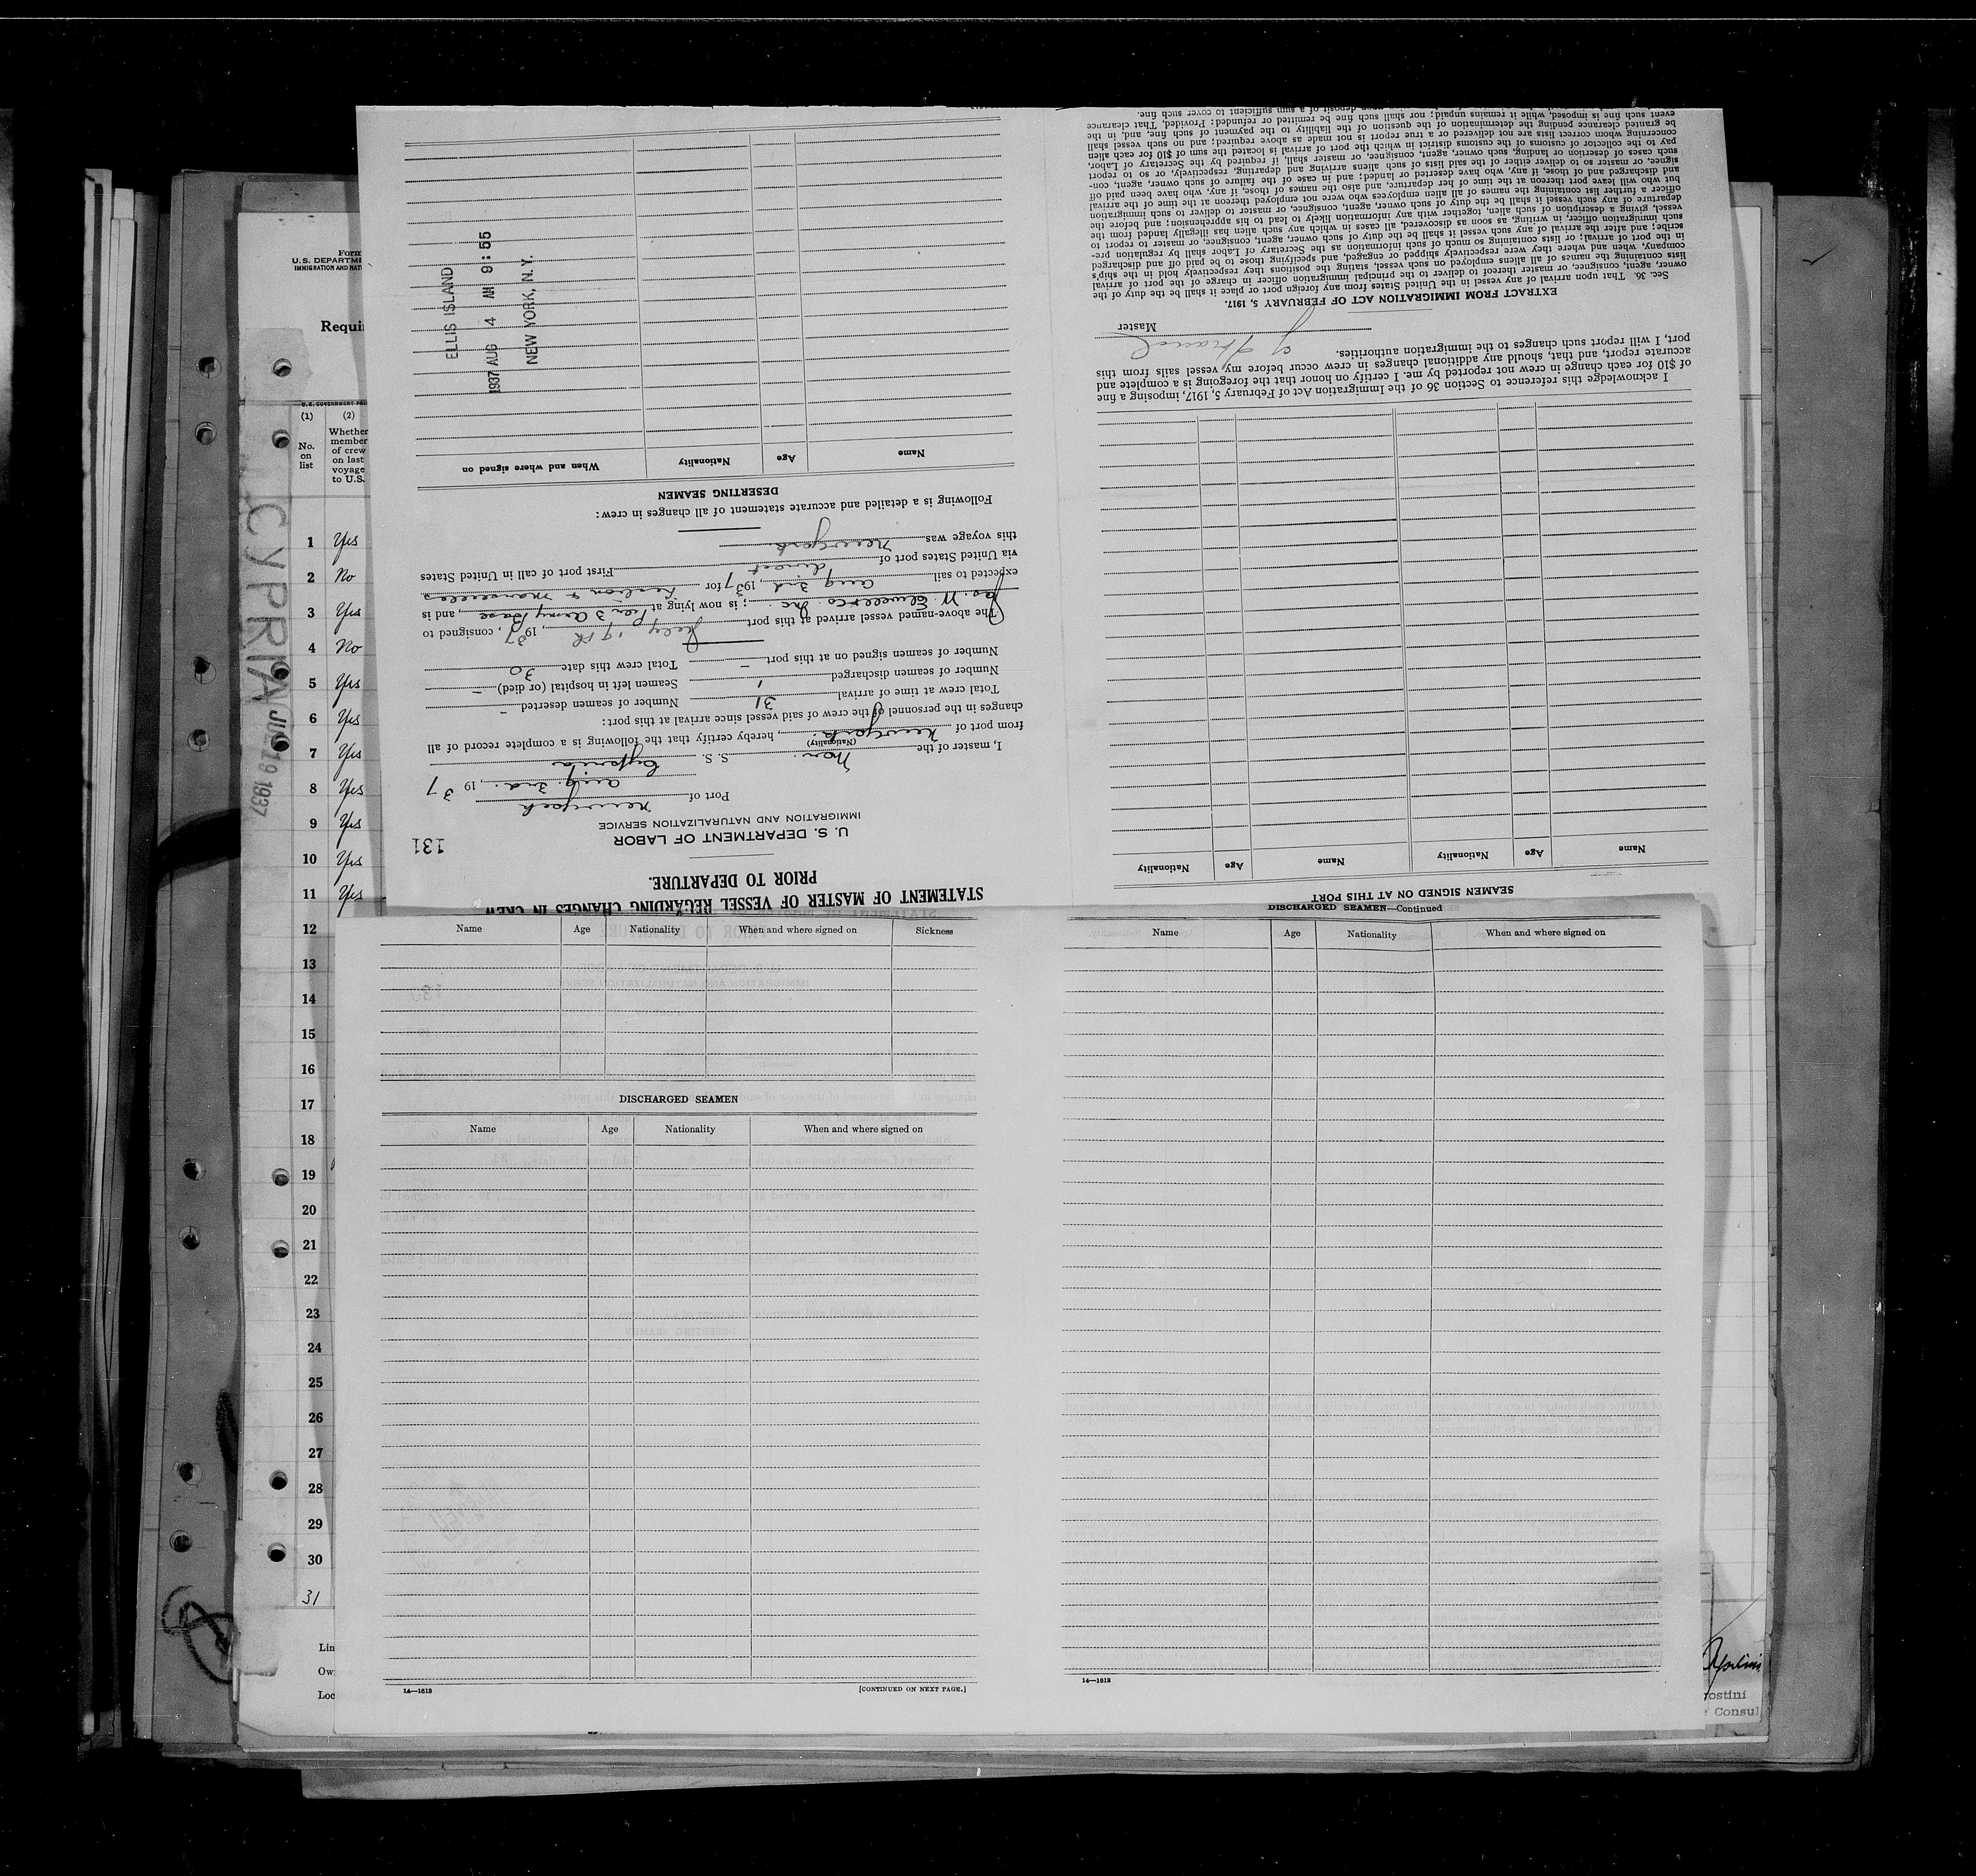 Form
U.S. DEPARTME
IMMIGRATION AND NAT
Requi
U.S. GOVERNMENT PRI
(1)
(2)
No.
on
list
Whether
member
of crew
on last
voyage
to U.S.
1 Yes
2 No
3 Yes
4 No
5 Yes
6 Yes
7 Yes
8 Yes
9 Yes
10 Yes
11 Yes
12
13
14
15
16
17
18
19
20
21
22
23
24
25
26
27
28
29
30
31
Lin
Ow
Loc
CYPRIA JUL 19 1937
STATEMENT OF MASTER OF VESSEL REGARDING CHANGES IN CREW
PRIOR TO DEPARTURE.
U. S. DEPARTMENT OF LABOR
IMMIGRATION AND NATURALIZATION SERVICE
131
Port of New York
Aug. 3rd., 1937
I, master of the Nor. S. S. Cypria
(Nationality)
from port of New York, hereby certify that the following is a complete record of all
changes in the personnel of the crew of said vessel since arrival at this port:
Total crew at time of arrival 31 Number of seamen deserted -
Number of seamen discharged 1 Seamen left in hospital (or died) -
Number of seamen signed on at this port - Total crew this date 30
The above-named vessel arrived at this port July 19th, 1937, consigned to
Jas. W. Elwell & Co. Inc.; is now lying at Pier 3 Army Base, and is
expected to sail Aug 3rd, 1937 for Lisbon & Marseilles
via United States port of direct First port of call in United States
this voyage was New York
Following is a detailed and accurate statement of all changes in crew:
DESERTING SEAMEN
Name Age Nationality When and where signed on
ELLIS ISLAND
1937 AUG 4 AM 9:55
NEW YORK, N.Y.
SEAMEN SIGNED ON AT THIS PORT
Name Age Nationality Name Age Nationality
I acknowledge this reference to Section 36 of the Immigration Act of February 5, 1917, imposing a fine
of $10 for each change in crew not reported by me. I certify on honor that the foregoing is a complete and
accurate report, and that, should any additional changes in crew occur before my vessel sails from this
port, I will report such changes to the immigration authorities.
Master
EXTRACT FROM IMMIGRATION ACT OF FEBRUARY 5, 1917.
Sec. 36. That upon arrival of any vessel in the United States from any foreign port or place it shall be the duty of the
owner, agent, consignee, or master thereof to deliver to the principal immigration officer in charge of the port of arrival
lists containing the names of all aliens employed on such vessel, stating the positions they respectively hold in the ship's
company, when and where they were respectively shipped or engaged, and specifying those to be paid off and discharged
in the port of arrival; or lists containing so much of such information as the Secretary of Labor shall by regulation pre-
scribe; and after the arrival of any such vessel it shall be the duty of such owner, agent, consignee, or master to report to
such immigration officer, in writing, as soon as discovered, all cases in which any such alien has illegally landed from the
vessel, giving a description of such alien, together with any information likely to lead to his apprehension; and before the
departure of any such vessel it shall be the duty of such owner, agent, consignee, or master to deliver to such immigration
officer a further list containing the names of all alien employees who were not employed thereon at the time of the arrival
but who will leave port thereon at the time of her departure, and also the names of those, if any, who have been paid off
and discharged and of those, if any, who have deserted or landed; and in case of the failure of such owner, agent, con-
signee, or master so to deliver either of the said lists of such aliens arriving and departing, respectively, or so to report
such cases of desertion or landing, such owner, agent, consignee, or master shall, if required by the Secretary of Labor,
pay to the collector of customs of the customs district in which the port of arrival is located the sum of $10 for each alien
concerning whom correct lists are not delivered or a true report is not made as above required; and no such vessel shall
be granted clearance pending the determination of the question of the liability to the payment of such fine, and, in the
event such fine is imposed, while it remains unpaid; nor shall such fine be remitted or refunded: Provided, That clearance
upon deposit of a sum sufficient to cover such fine.
Name Age Nationality When and where signed on Sickness
DISCHARGED SEAMEN
Name Age Nationality When and where signed on
14—1613
[CONTINUED ON NEXT PAGE.]
DISCHARGED SEAMEN—Continued
Name Age Nationality When and where signed on
14—1613
ostini
Consul